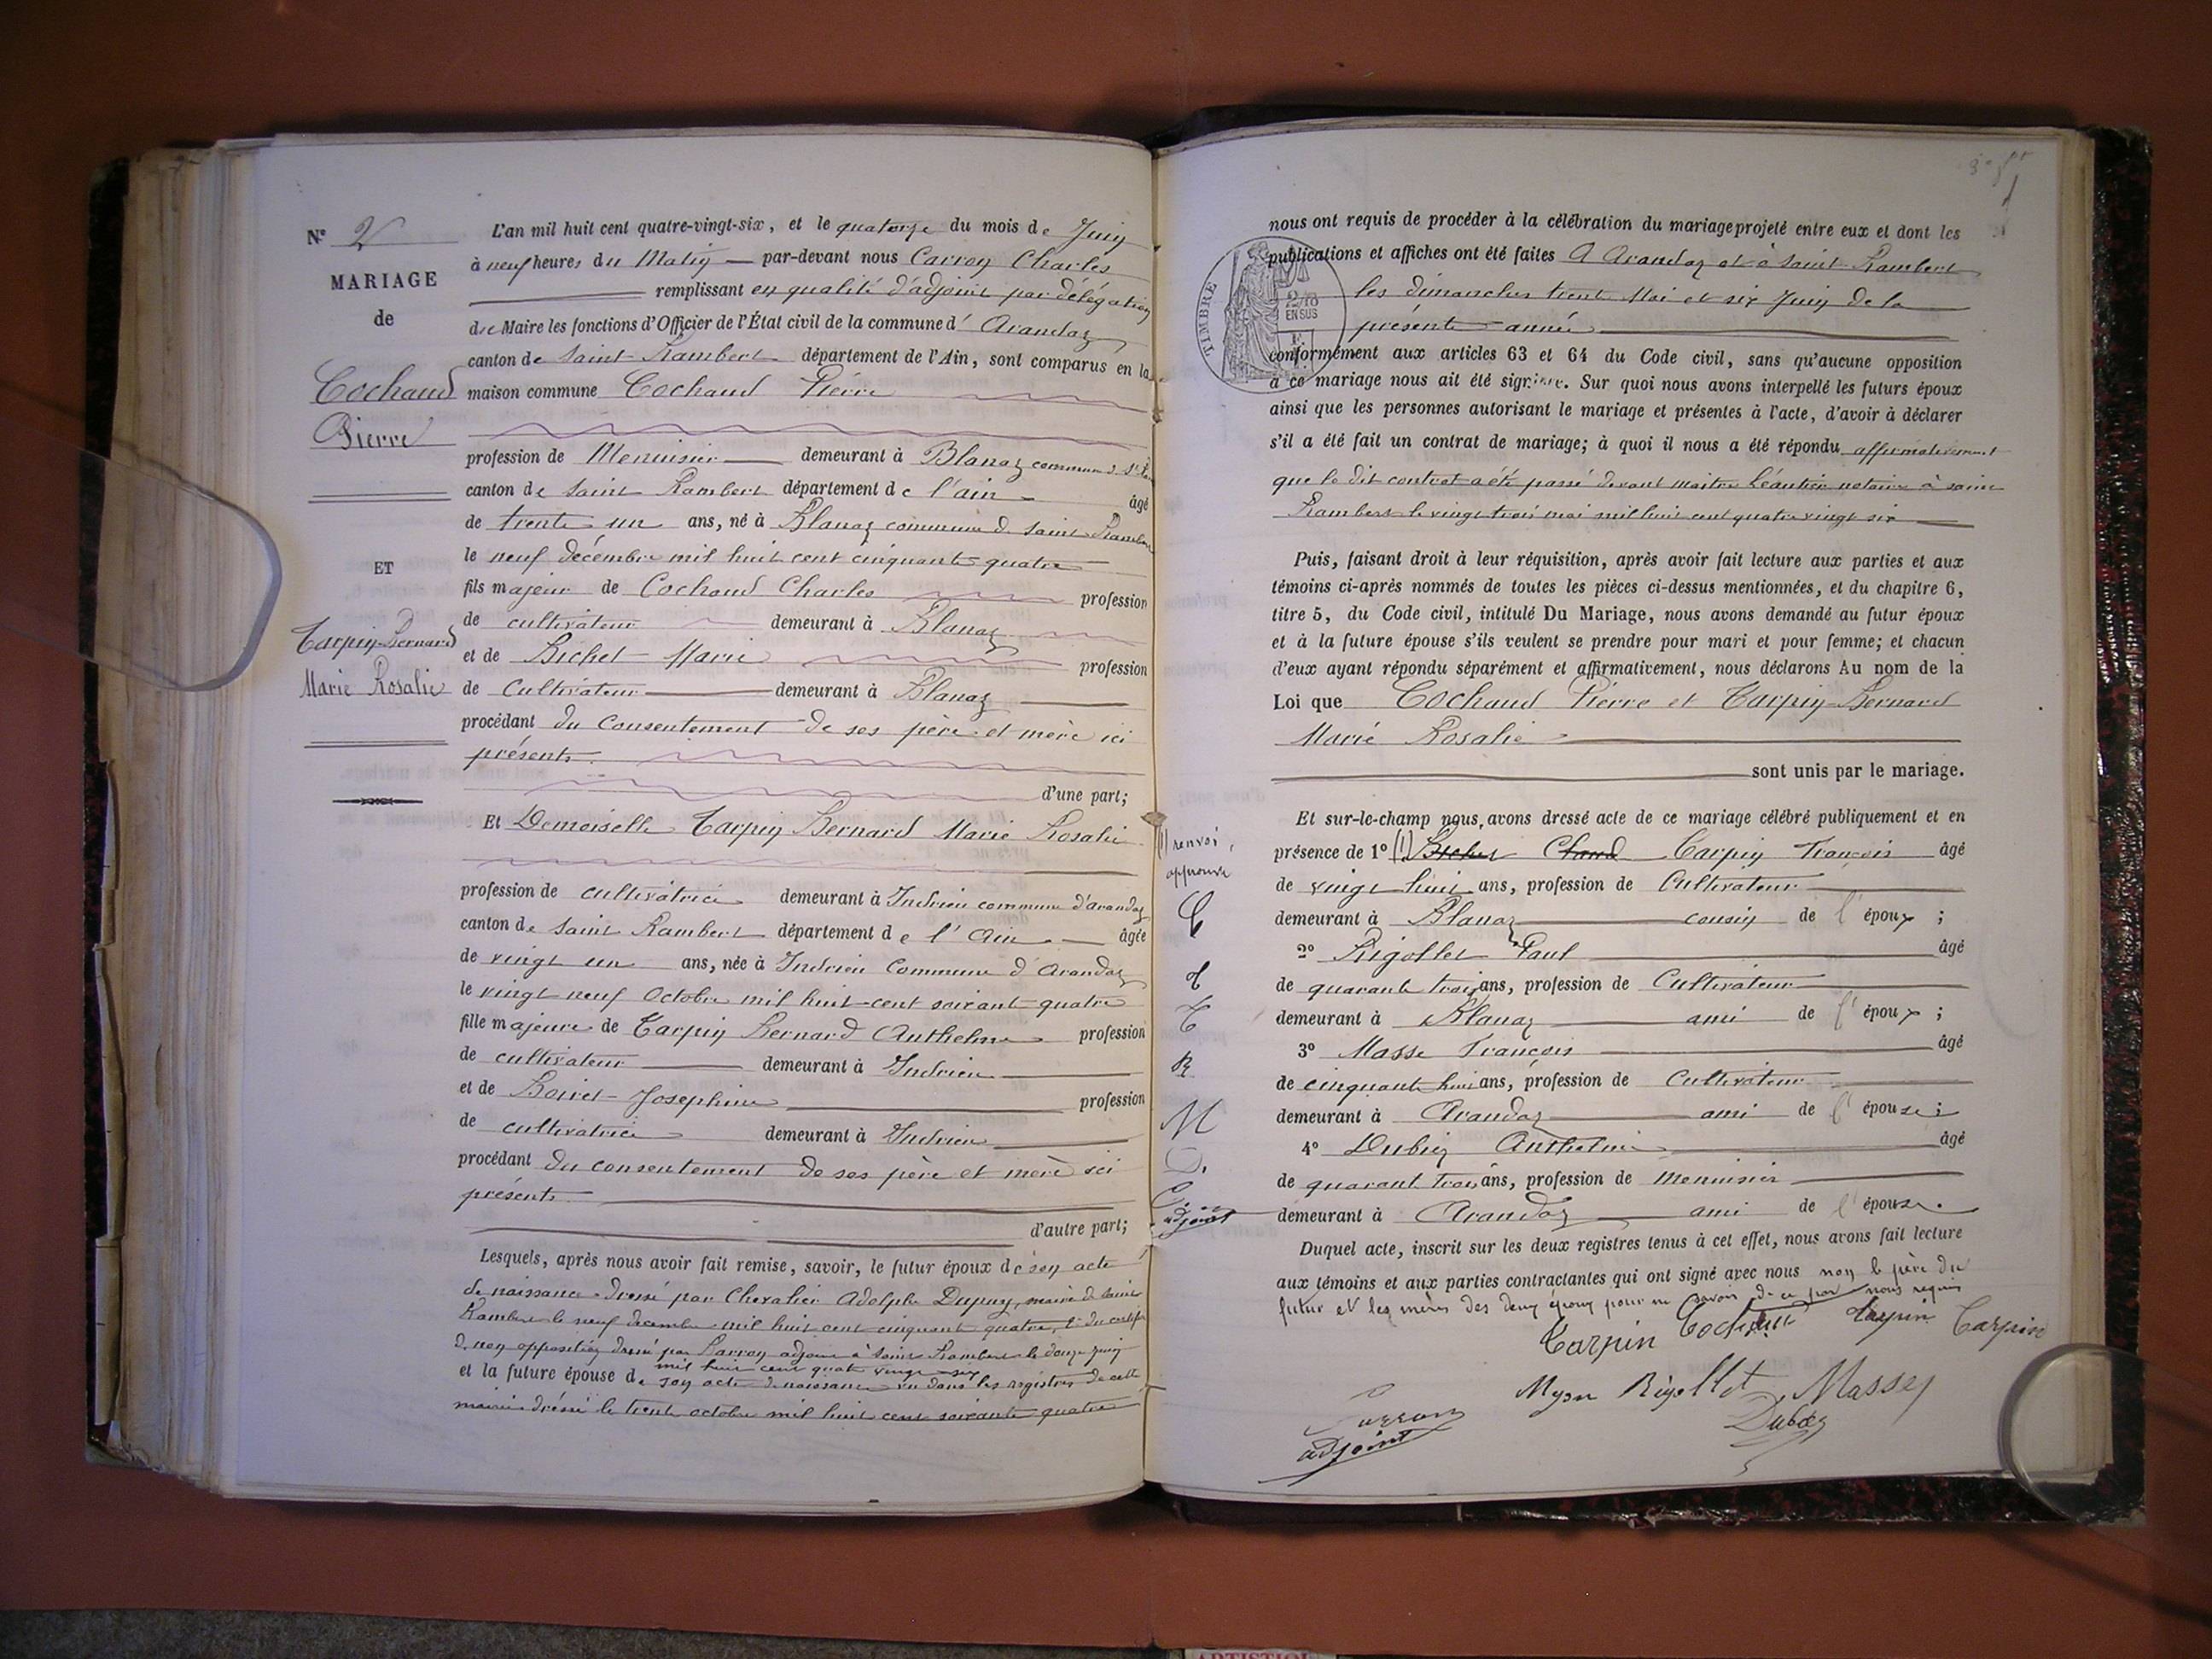 N° 2
MARIAGE
de
Cochaud
Pierre
ET
Tarpin-Bernard
Marie Rosalie
L'an mil huit cent quatre-vingt-six, et le quatorze du mois de Juin
à neuf heures du Matin par-devant nous Carron Charles
remplissant en qualité d'adjoint par délégation
du Maire les fonctions d'Officier de l'État civil de la commune d' Arandaz
canton de Saint Rambert département de l'Ain, sont comparus en la
maison commune Cochaud Pierre
profession de Menuisier demeurant à Blanaz commune d St
canton de Saint Rambert département de l'ain âgé
de trente un ans, né à Blanaz commune d Saint Rambert
le neuf décembre mil huit cent cinquante quatre
fils majeur de Cochaud Charles profession
de cultivateur demeurant à Blanaz
et de Bichet Marie profession
de Cultivateur demeurant à Blanaz
procédant du Consentement de ses père et mère ici
présents.
d'une part;
Et Demoiselle Tarpin Bernard Marie Rosalie
profession de cultivatrice demeurant à Indrieu commune d'arandaz
canton de Saint Rambert département de l'Ain âgée
de vingt un ans, née à Indrieu Commune d'Arandaz
le vingt neuf Octobre mil huit-cent soixant quatre
fille majeure de Tarpin Bernard Anthelme profession
de cultivateur demeurant à Indrieu
et de Boivet Josephine profession
de cultivatrice demeurant à Indrieu
procédant du consentement de ses père et mère ici
présents
d'autre part;
Lesquels, après nous avoir fait remise, savoir, le futur époux de son acte
de naissance dressé par Chevalier Adolphe Dupuy, maire de Saint
Rambert le neuf decembre mil huit cent cinquant quatre, & du certifi
d. non opposition dressé par adjoint à Saint Rambert le douze juin
mil huit cent quatre vingt six
et la future épouse de son acte de naissance vu dans les registres de cette
mairie dréssé le trente octobre mil huit cent soixante quatre
nous ont requis de procéder à la célébration du mariage projeté entre eux et dont les
publications et affiches ont été faites A Arandaz et à Saint-Rambert
les dimanches trente Mai et six Juin de la
présente année
TIMBRE
2/10
EN SUS
conformément aux articles 63 et 64 du Code civil, sans qu'aucune opposition
à ce mariage nous ait été signifiée. Sur quoi nous avons interpellé les futurs époux
ainsi que les personnes autorisant le mariage et présentes à l'acte, d'avoir à déclarer
s'il a été fait un contrat de mariage; à quoi il nous a été répondu affirmativement
que le dit contrat a été passé devant maitre Léautier notaire à saint
Rambert le vingt trois mai mil huit cent quatre vingt six
Puis, faisant droit à leur réquisition, après avoir fait lecture aux parties et aux
témoins ci-après nommés de toutes les pièces ci-dessus mentionnées, et du chapitre 6,
titre 5, du Code civil, intitulé Du Mariage, nous avons demandé au futur époux
et à la future épouse s'ils veulent se prendre pour mari et pour femme; et chacun
d'eux ayant répondu séparément et affirmativement, nous déclarons Au nom de la
Loi que Cochaud Pierre et Tarpin-Bernard
Marie Rosalie
sont unis par le mariage.
Et sur-le-champ nous, avons dressé acte de ce mariage célébré publiquement et en
présence de 1° (1) Bichet Tarpin François âgé
de vingt huit ans, profession de Cultivateur
demeurant à Blanaz cousin de l'époux ;
2° Rigollet Paul âgé
de quarante trois ans, profession de Cultivateur
demeurant à Blanaz ami de l'époux ;
3° Masse François âgé
de cinquante huit ans, profession de Cultivateur
demeurant à Arandaz ami de l'épouse ;
4° Dubiez Anthelme âgé
de quarant trois ans, profession de menuisier
demeurant à Arandaz ami de l'épouse.
(1) renvoi
approuvé
C
T
T
R
M
D.
adjoint
Duquel acte, inscrit sur les deux registres tenus à cet effet, nous avons fait lecture
aux témoins et aux parties contractantes qui ont signé avec nous non le père du
futur et les mères des deux époux pour ne savoir de ce par nous requis
Tarpin Cochaud Tarpin Tarpin
Rigollet Massey
Dubiez
adjoint